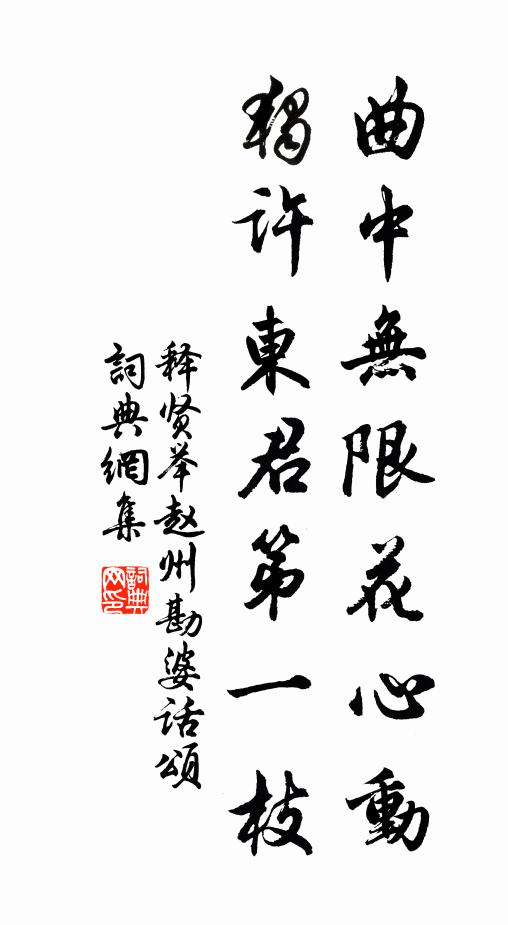 曲中無限花心動
獨許東君第一枝
释贤举赵州勘婆话頌
詞典網集
詞典網印